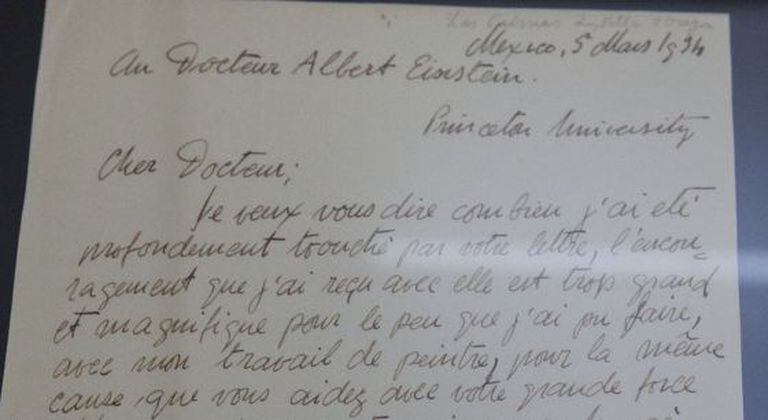 Mexico, 5 Mars 1934
Au Docteur Albert Einstein.
Princeton University
Cher Docteur;
Je veux vous dire combien j'ai eté
profondement touché par votre lettre, l'encou=
ragement que j'ai reçu avec elle est trop grand
et magnifique pour le peu que j'ai pu faire,
avec mon travail de peintre, pour la même
cause, que vous aidez avec votre grande force